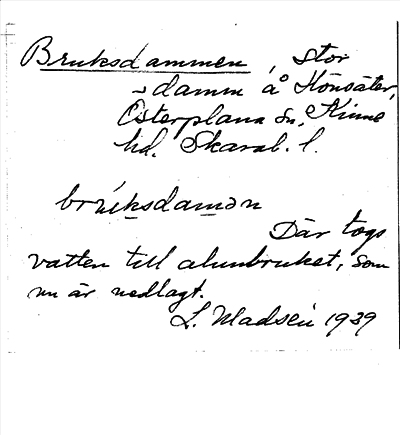 Bruksdammen, stor
damm å Hönsäter,
Österplana sn, Kinne
hd. Skarab. l.
brúksdamən
Där togs
vatten till alunbruket, som
nu är nedlagt.
L. Madsén 1939